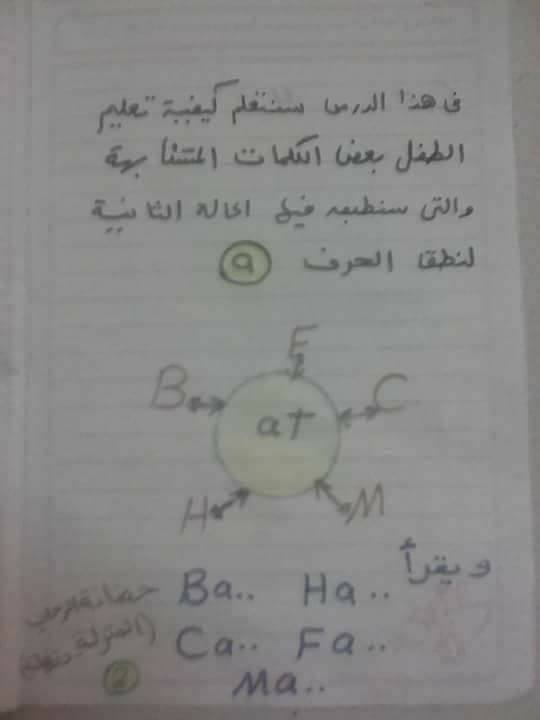 فى هذا الدرس سنتعلم كيفية تعليم
الطفل بعض الكلمات المتشابهة
والتى سنطبق فيها الحالة الثانية
لنطق الحرف a
F
B C
at
H M
ويقرأ
Ba.. Ha..
Ca.. Fa..
Ma..
المنزلية
2